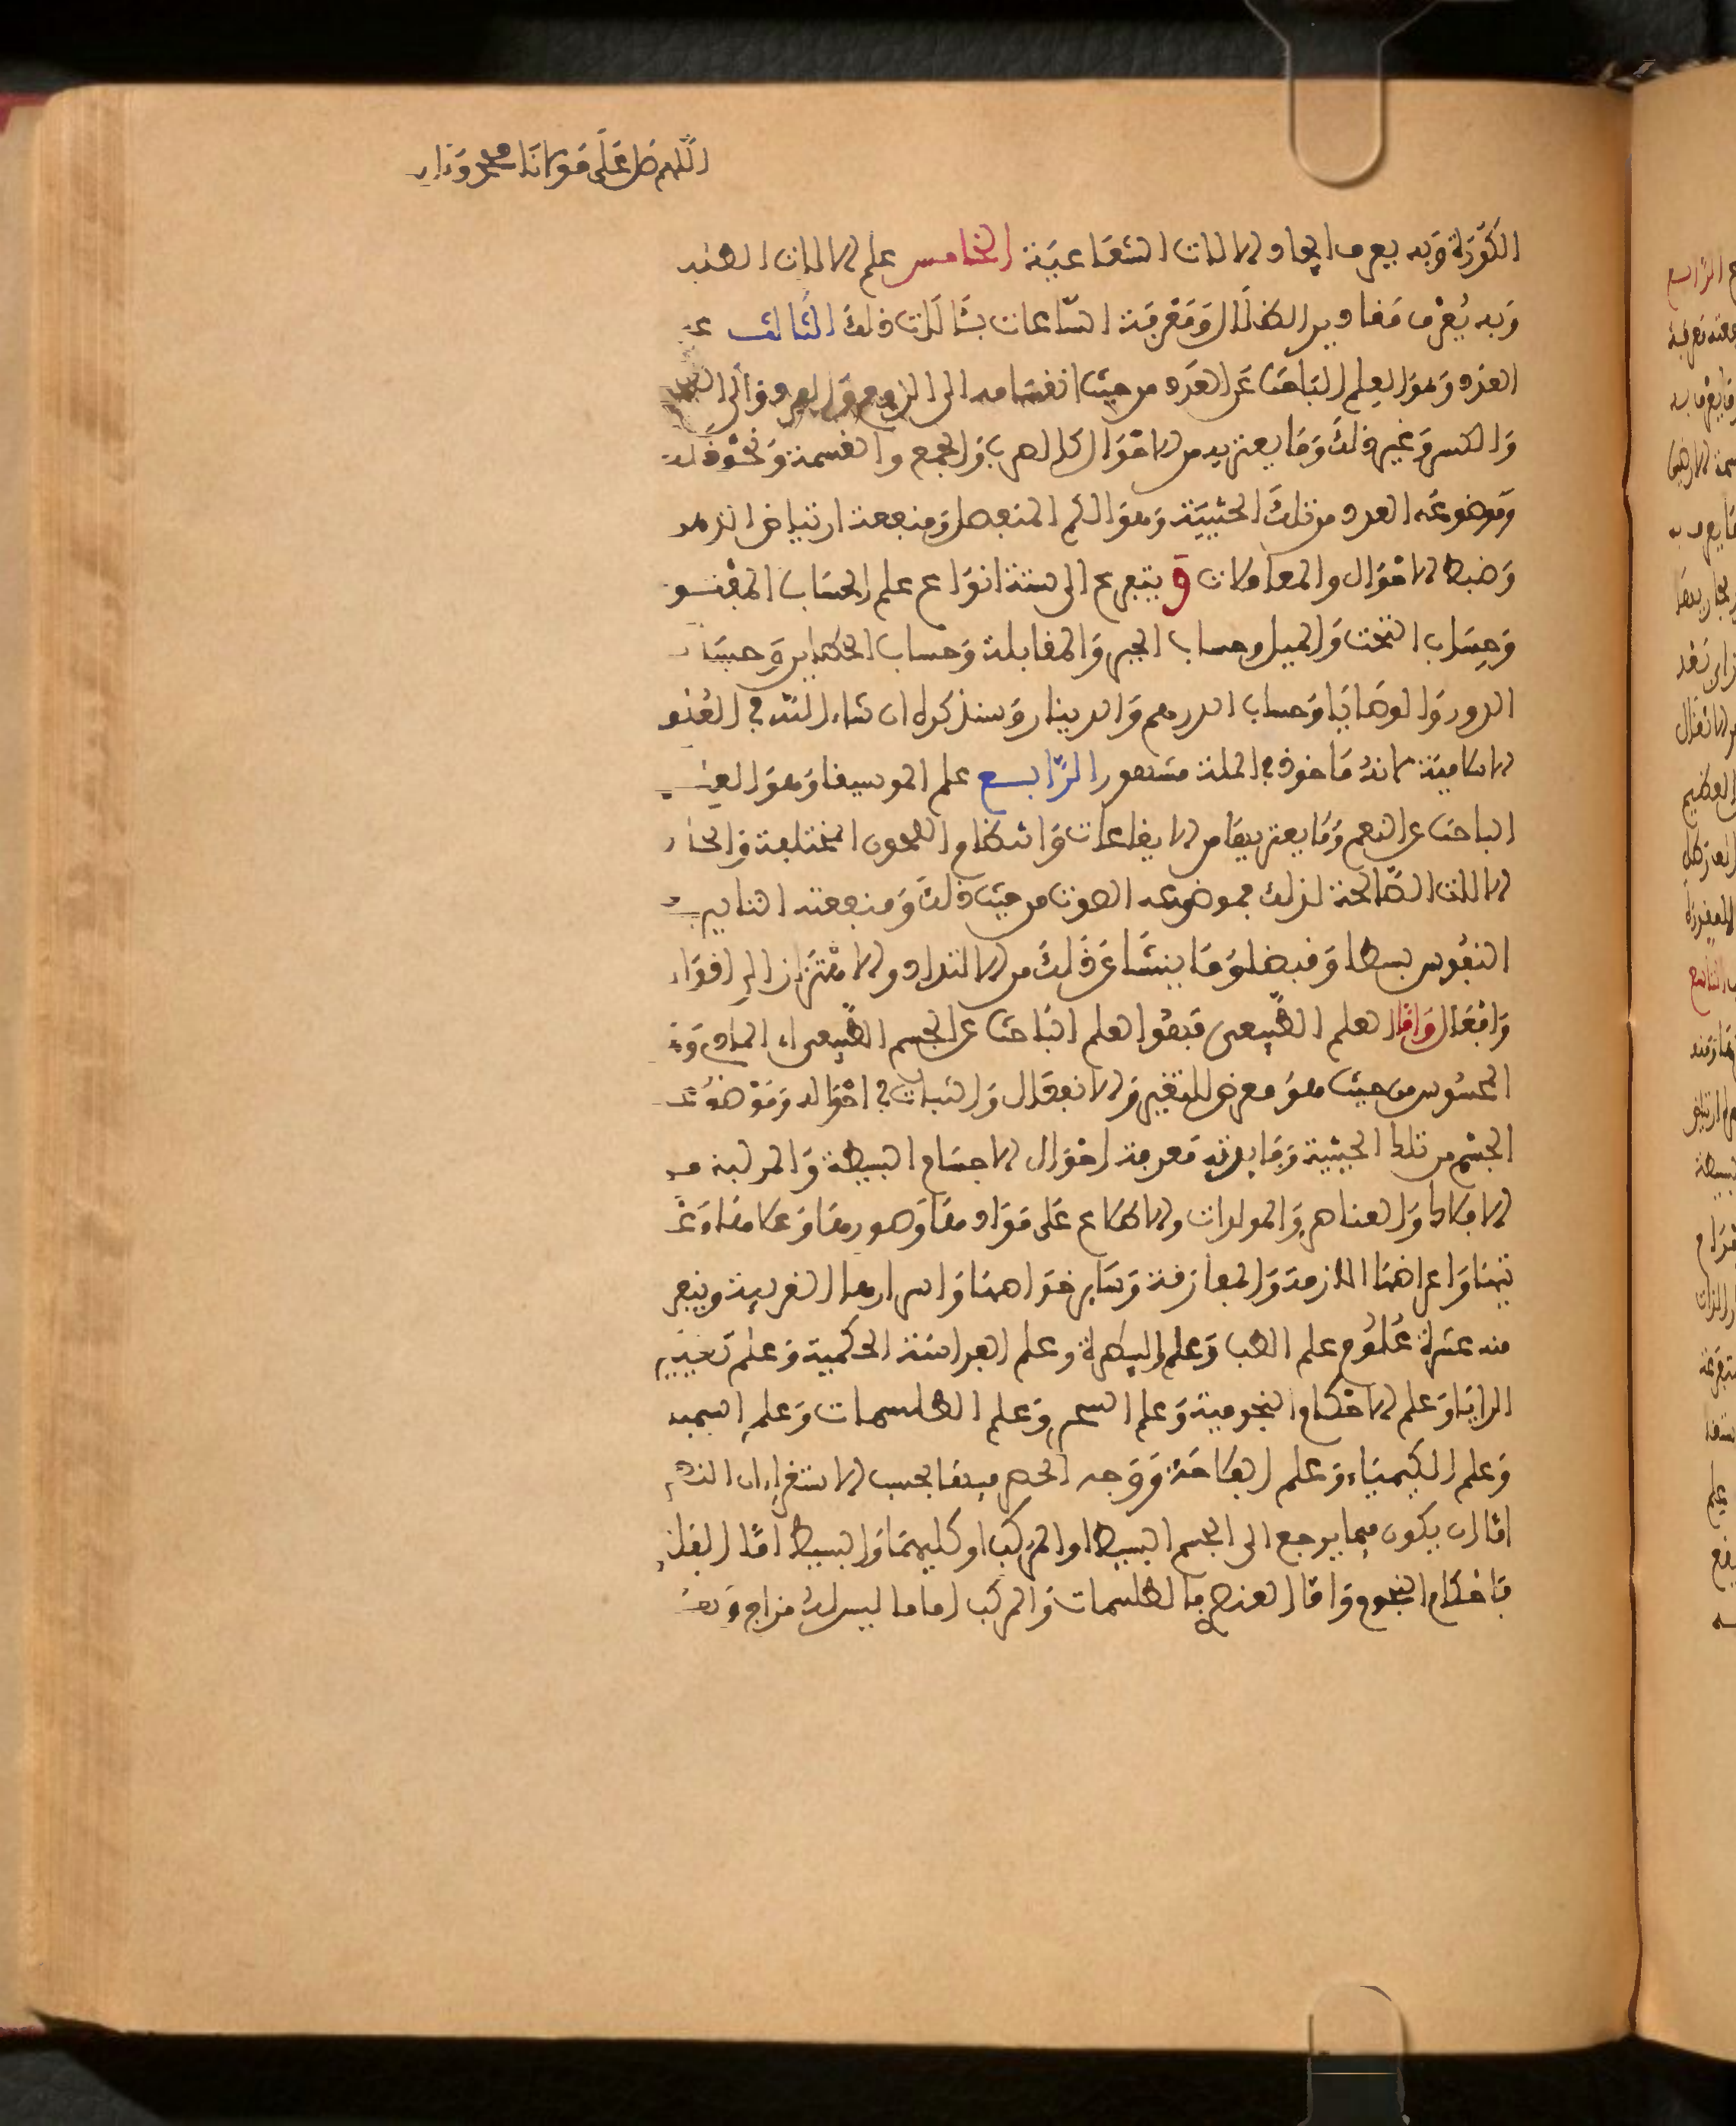 اللهم صل على مولانا محمد وءاله
الكورة وبه يعرف ايجاد الالات الشعاعية الخامس علم الالات الظلية
وبه يُعْرف مقادير الظلال ومعرفة الساعات بئالات ذلك الثالث علم
العدد وهو العلم الباحث عن العدد من حيث انقسامه الى الزوج والفرد والى
والكسر وغير ذلك وما يعتريه من الاحوال كالضرب والجمع والقسمة ونحو ذلك
وموضوعه العدد من تلك الحيثية وهو الكم المنفصل ومنفعته ارتياض الذهن
وضبط الاموال والمعاملات و يتفرع الى ستة انواع علم الحساب المفتوح
وحساب التخت والميل وحساب الجبر والمقابلة وحساب الخطأين وحساب
الدور والوصايا وحساب الدرهم والدينار وسنذكره ان شاء الله في العلوم
الاسلامية لانه ماخوذ في الملة مشهور الرّابع علم الموسيقا وهو العلم
الباحث عن النغم وما يعتريها من الايقاعات وانتظام اللحون المختلفة واتخاذ
الالات الصالحة لذلك فموضوعه الصوت من حيث ذلك ومنفعته التاثير في
النفوس بسطا وقبضا وما ينشأ عن ذلك من الالتذاذ والاهتزاز الى اقوال
وافعال واما العلم الطبيعي فهو العلم الباحث عن الجسم الطبيعي اي المادي
المحسوس من حيث هو معرض للتغير والانفعال والثبات في احواله وموضوعه
الجسم من تلك الحيثية وفايدته معرفة احوال الاجسام البسيطة والمركبة من
الافلاك والعناصر والمولدات والاطلاع على موادها وصورها وعللها
واعراضها اللازمة والمفارقة وساير خواصها واسرارها الغريبة ويتفرع
منه عشرة علوم علم الطب وعلم البيطرة وعلم الفراسة الحكمية وعلم تعبير
الرايا وعلم الاحكام النجومية وعلم السحر وعلم الطلسمات وعلم السيمية
وعلم الكيمياء وعلم الفلاحة ووجه الحصر فيها بحسب الاستقراء ان النظر
اما ان يكون فيما يرجع الى الجسم البسيط او المركب او كليهما والبسيط اما الفلكي
فاحكام النجوم واما العنصري فالطلسمات والمركب اما ما ليس له مزاج وهو